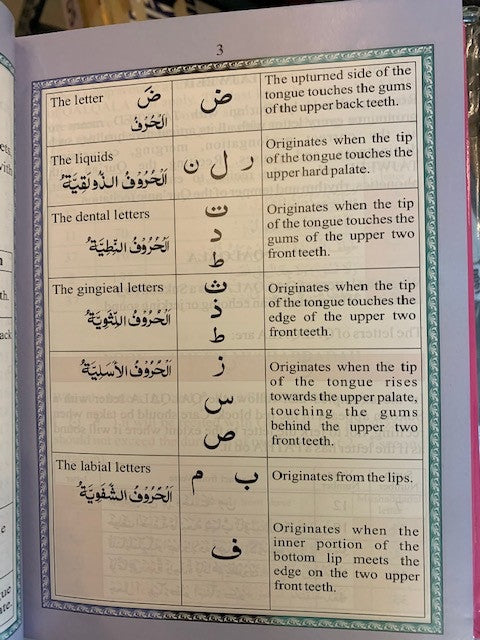 3
The letter ضَ
اَلْحُرُفُ
ض
The upturned side of the
tongue touches the gums
of the upper back teeth.
The liquids
اَلْحُرُوْفُ الذَّوْلَقِيَّةُ
ر ل ن
Originates when the tip
of the tongue touches the
upper hard palate.
The dental letters
اَلْحُرُوْفُ النِّطِيَّةُ
ت
د
ط
Originates when the tip
of the tongue touches the
gums of the upper two
front teeth.
The gingieal letters
اَلْحُرُوْفُ اللِّثَوِيَّةُ
ث
ذ
ط
Originates when the tip
of the tongue touches the
edge of the upper two
front teeth.
اَلْحُرُوْفُ الْأَسَلِيَّةُ
ز
س
ص
Originates when the tip
of the tongue rises
towards the upper palate,
touching the gums
behind the upper two
front teeth.
The labial letters
اَلْحُرُوْفُ الشَّفَوِيَّةُ
ب م
Originates from the lips.
ف
Originates when the
inner portion of the
bottom lip meets the
edge on the two upper
front teeth.